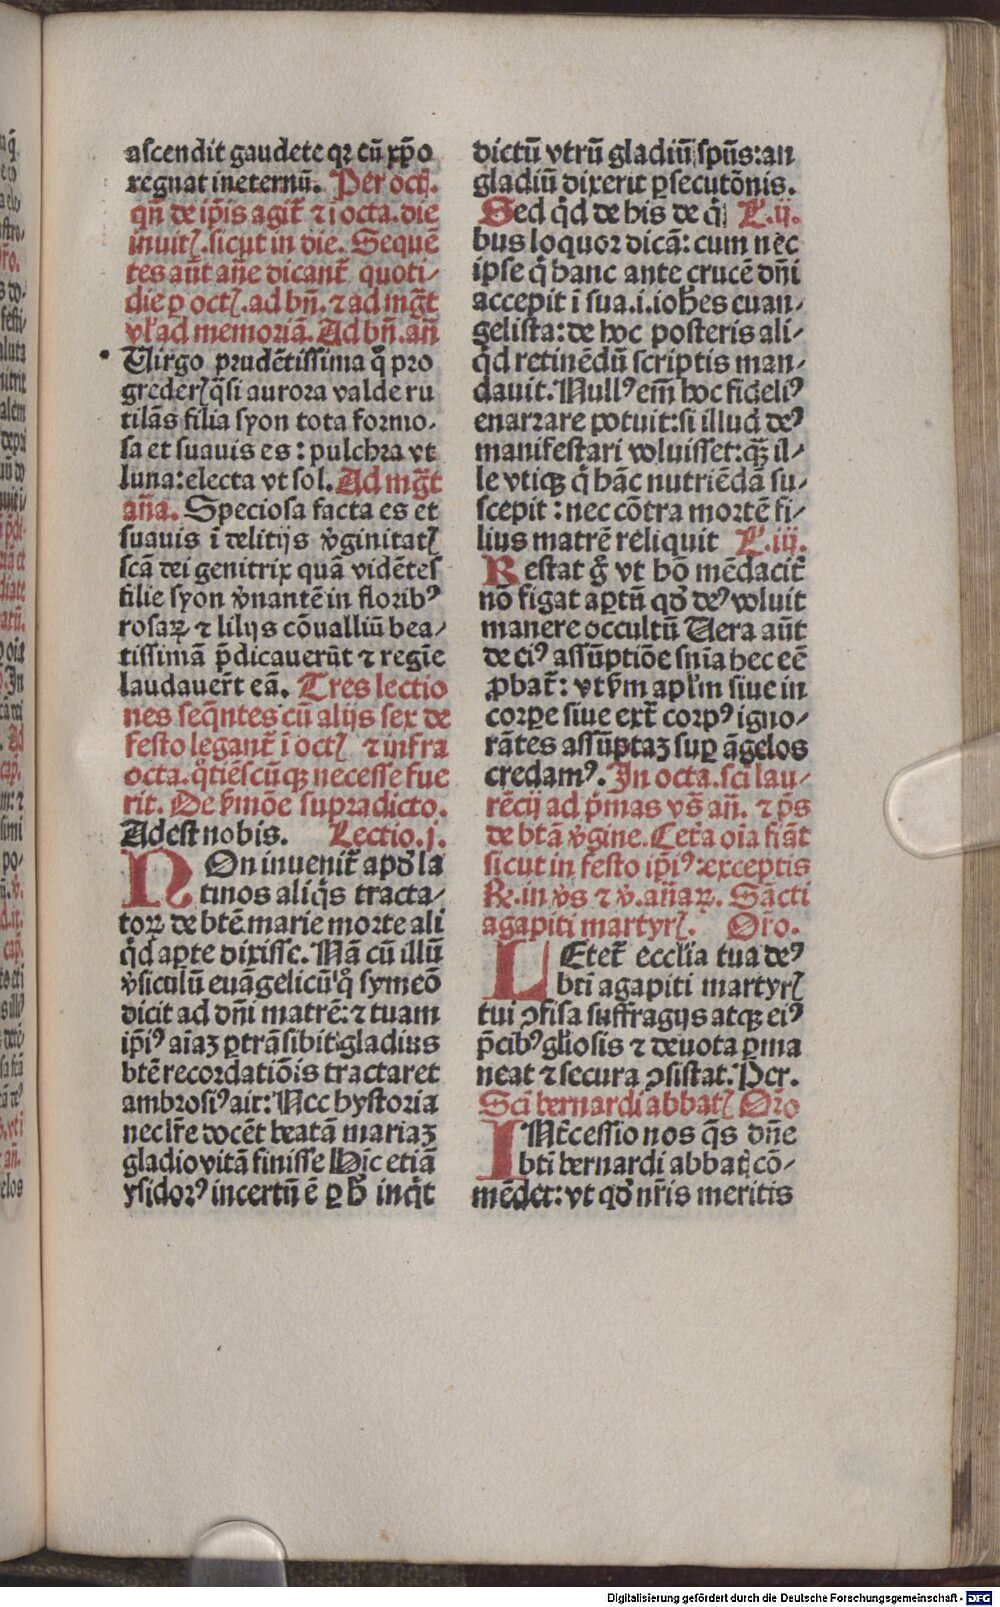 ascendit gaudete qꝛ cū xp̄o
regnat ineternū. Per octꝭ.
qn̄ de ip̄is agit̄ ⁊ ī octa. die
inuitꝭ. sicut in die. Sequē
tes aūt añe dicant̄ quoti⸗
die ꝑ octꝭ. ad bn̄. ⁊ ad mḡt
vl̓ ad memoriā. Ad bn̄. an̄
Virgo prudētissima qͦ pro
grederꝭ q̄si aurora valde ru
tilās filia syon tota formo⸗
sa et suauis es : pulchra vt
luna: electa vt sol. Ad mḡt
an̄a. Speciosa facta es et
suauis ī delitijs v̓ginitatꝭ
scā dei genitrix quā vidētes
filie syon v̓nantē in floribꝰ
rosaꝝ ⁊ lilijs cōualliū bea⸗
tissimā p̄dicauerūt ⁊ regīe
laudauer̄t eā. Tres lectio
nes seq̄ntes cū alijs sex de
festo legant̄ ī octꝭ ⁊ infra
octa. qͦtiēscūqꝫ necesse fue
rit. De s̓mōe supradicto.
Adest nobis. Lectio.j.
NOn inuenit̄ apd̓ la
tinos aliq̄s tracta⸗
toꝝ de btē marie morte ali
q̄d aperte dixisse. Nā cū illū
v̓siculū euāgelicū qͦ symeō
dicit ad dn̄i matrē: ⁊ tuam
ip̄iꝰ aīaꝫ ꝑtrāsibit gladius
btē recordatiōis tractaret
ambrosiꝰ ait: Nec hystoria
nec lr̄e docēt beatā mariaꝫ
gladio vitā finisse Hīc etiā
ysidorꝰ incertū ē ꝑ h̓ inq̄t
dictū vtrū gladiū spūs: an
gladiū dixerit ꝑsecutōnis.
Sed q̄d de his de q̄ L̓.ii.
bus loquor dicā: cum nec
ipse q̄ hanc ante crucē dn̄i
accepit ī sua.i.ioh̓es euan⸗
gelista: de hoc posteris ali⸗
q̄d retinēdū scriptis man⸗
dauit. Nullꝰ em̄ hoc fideliꝰ
enarrare potuit: si illud deꝰ
manifestari voluisset: qꝫ il⸗
le vtiqꝫ q̄ hāc nutriēdā su⸗
scepit : nec cōtra mortē fi⸗
lius matrē reliquit L̓.iij.
Restat g̊ vt hō mēdacit̄
nō figat aꝑtū qd̓ deꝰ voluit
manere occultū Uera aūt
de eiꝰ assūptiōe sn̄ia hec eē
ꝓbat̄: vt v̓m apl̓m siue in
corpe siue ext̄ corpꝰ igno⸗
rātes assūptaꝫ suꝑ āgelos
credamꝰ. In octa. sci̅ lau⸗
rēcij ad p̄mas vs̄ an̄. ⁊ p̄s
de btā v̓gine. Ceta oīa fiāt
sicut in festo ip̄iꝰ exceptis
℞. in v̓s ⁊ v̓. an̄aꝝ. Sācti
agapiti martyrꝭ. Or̄o.
LEtet̄ ecclīa tua deꝰ
bti̅ agapiti martyrꝭ
tui ꝯfisa suffragijs atqꝫ eiꝰ
p̄cibꝰ gl̓iosis ⁊ deuota ꝑma
neat ⁊ secura ꝯsistat. Per.
Sci̅ bernardi abbatꝭ Or̄o
INt̄cessio nos q̄s dn̄e
bti̅ bernardi abbatꝭ cō⸗
mēdet: vt qd̓ nr̄is meritis
Digitalisierung gefördert durch die Deutsche Forschungsgemeinschaft - DFG